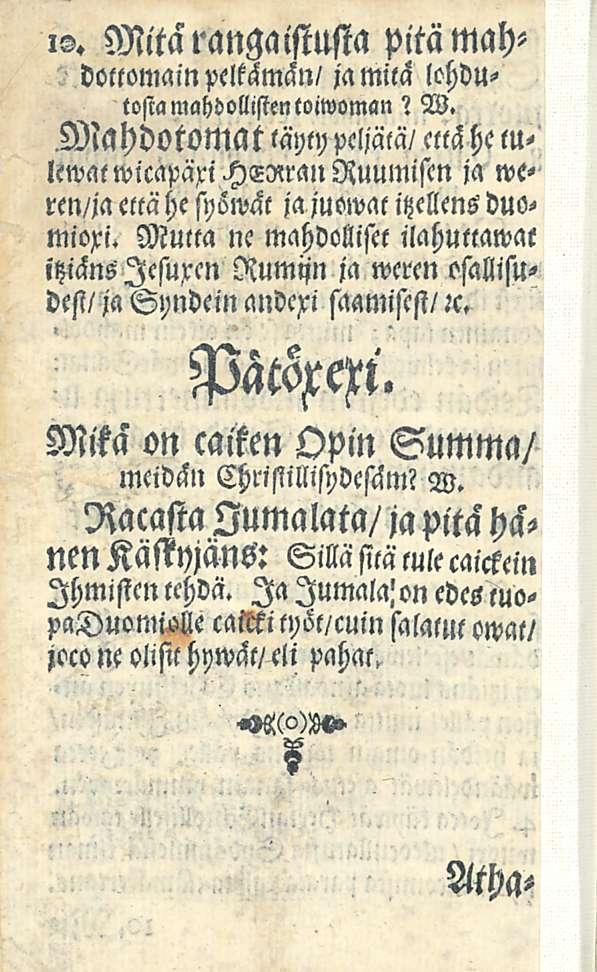 10. Mitä rangaistusta pitä mah⸗
dottomain pelkämän/ ja mitä lohdu⸗
tosta mahdollisten toiwoman? W.
Mahdotomat täyty peljätä/ että he tu⸗
lewat wicapäxi HERran Ruumisen ja we⸗
ren/ ja että he syöwät ja juowat itzellens duo⸗
mioxi. Mutta ne mahdolliset ilahuttawat
itziäns Jesuxen Rumijn ja weren osallisu⸗
dest/ ja Syndein andexi saamisest/ ꝛc.
Pätöxexi.
Mikä on caiken Opin Summa/
meidän Christillisydesäm? W.
Racasta Jumalata/ ja pitä hä⸗
nen Käskyjäns: Sillä sitä tule caickein
Ihmisten tehdä. Ja Jumala on edes tuo⸗
pa Duomiolle caicki työt/ cuin salatut owat/
joco ne olisit hywät/ eli pahat.
(o)
Atha⸗